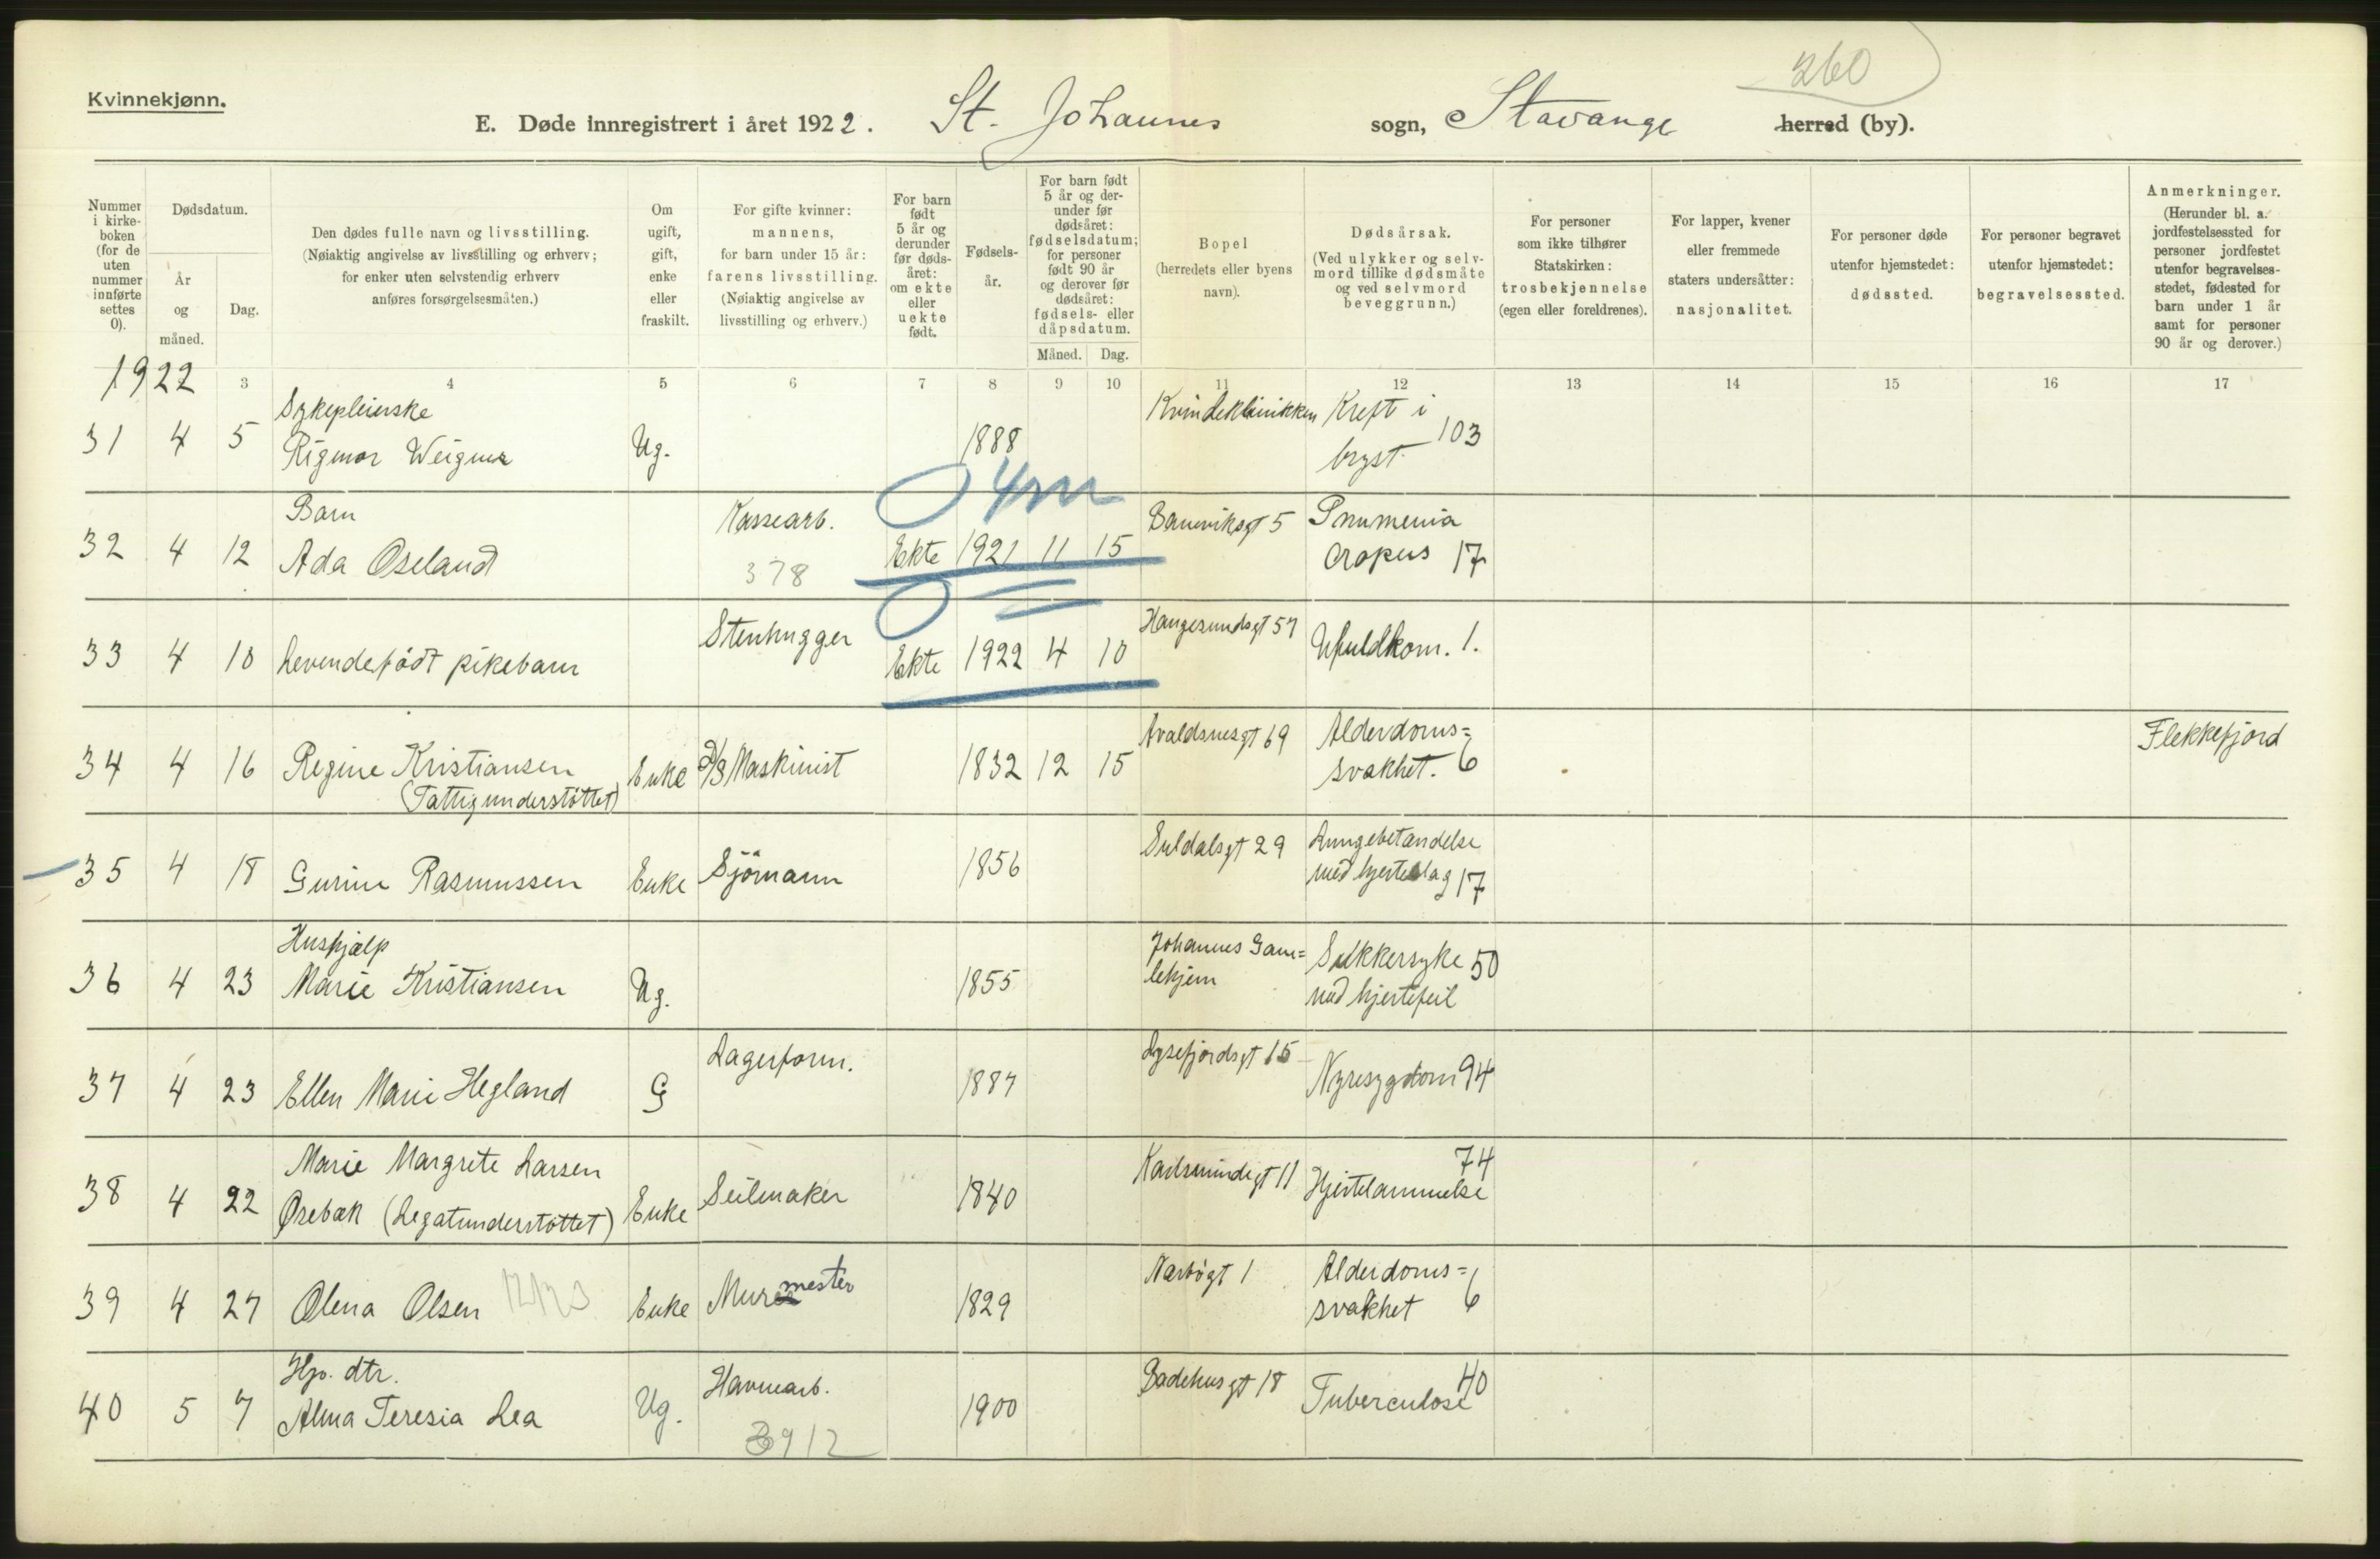 260
Kvinnekjønn.
E. Døde innregistrert i året 1922. St. Johannes sogn, Stavange herred (by).
Nummer i kirke-boken (for de uten nummer innførte settes 0).
Dødsdatum.
År og måned.
Dag.
Den dødes fulle navn og livsstilling.
(Nøiaktig angivelse av livsstilling og erhverv; for enker uten selvstendig erhverv anføres forsørgelsesmåten.)
Om ugift, gift, enke eller fraskilt.
For gifte kvinner: mannens, for barn under 15 år: farens livsstilling.
(Nøiaktig angivelse av livsstilling og erhverv.)
For barn født 5 år og derunder før døds-året: om ekte eller uekte født.
Fødsels-år.
For barn født 5 år og der-under før dødsåret: fødselsdatum; for personer født 90 år og derover før dødsåret: fødsels- eller dåpsdatum.
Måned. Dag.
Bopel (herredets eller byens navn).
Dødsårsak.
(Ved ulykker og selv-mord tillike dødsmåte og ved selvmord beveggrunn.)
For personer som ikke tilhører Statskirken: trosbekjennelse (egen eller foreldrenes).
For lapper, kvener eller fremmede staters undersåtter: nasjonalitet.
For personer døde utenfor hjemstedet: dødssted.
For personer begravet utenfor hjemstedet: begravelsessted.
Anmerkninger.
(Herunder bl. a. jordfestelsessted for personer jordfestet utenfor begravelses-stedet, fødested for barn under 1 år samt for personer 90 år og derover.)
1922 3 4 5 6 7 8 9 10 11 12 13 14 15 16 17
Sykepleierske Kvindeklinikken Kreft i
31 4 5 Rigmor Ug. 1888 bryst. 103
4m
Barn Kassearb. 5
32 4 12 Ada Oseland 378 Ekte 1921 11 15 cropus 17
Stenhugger Haugesundsgt 57
33 4 10 Levendefödt pikebarn Ekte 1922 4 10 Ufuldkom. 1.
Avaldsnesgt 69 Alderdoms= Flekkefjord
34 4 16 Regine Kristiansen Enke D/S Maskinist 1832 12 15 svakhet. 6
(Fattigunderstöttet)
Suldalsgt 29 Lungebetandelse
35 4 18 Gurine Rasmussen Enke Sjömann 1856 med hjerteslag 17
Hushjælp Johannes Gam= Sukkersyke 50
36 4 23 Marie Kristiansen Ug. 1855 lehjem med hjertefeil
Lagerform. Lysefjordsgt 15
37 4 23 Ellen Marie Hegland G 1887 Nyresygdom 94
Marie Margrete Larsen 11 74
38 4 22 Øsebak (Legatunderstöttet) Enke Seilmaker 1840 Hjertelammelse
Nærbögt 1 Alderdoms=
39 4 27 Olena Olsen Enke Murmester 1829 svakhet 6
Hjv. dtr. Havnearb. Badehusgt 18 40
40 5 7 Alma Teresia Lea Ug. 3912 1900 Tuberculose